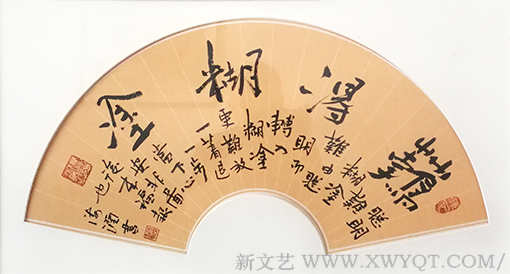 難得糊塗
聰明
難糊塗
難由聰
明而
轉入
糊塗
更難放
一著退
一步
當下心
安非圖
新文艺 - WWW.XWYQT.COM/